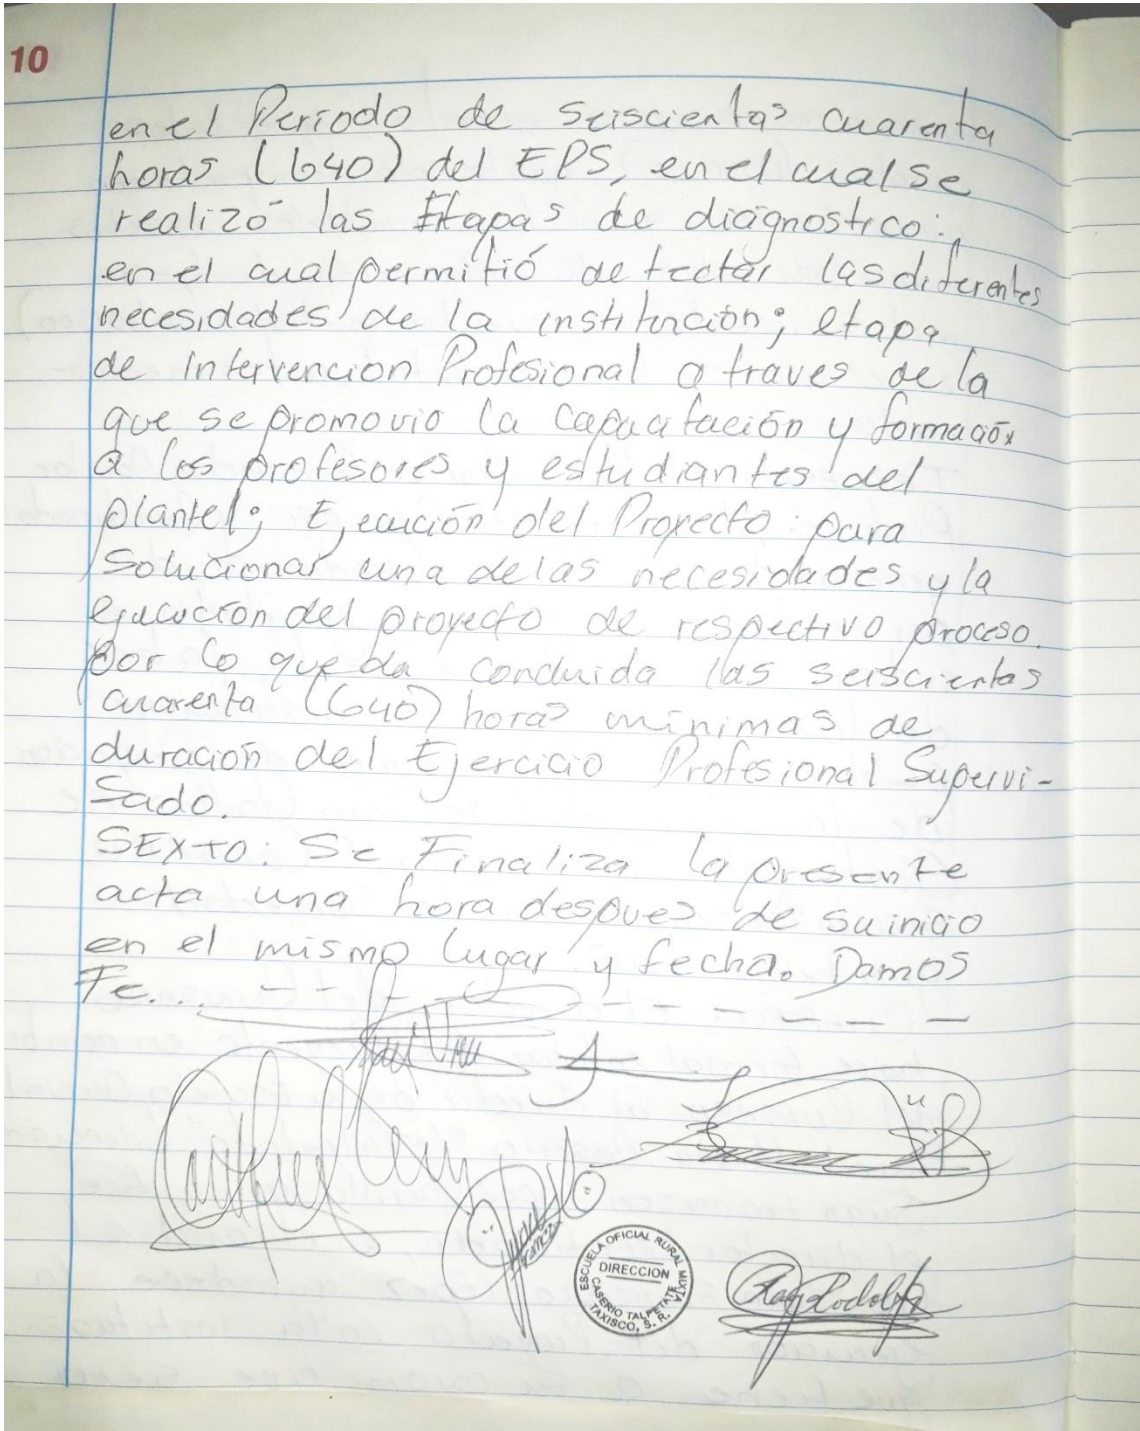 10
en el Periodo de seiscientas cuarenta
horas (640) del EPS, en el cual se
realizó las Etapas de diágnostico:,
en el cual permitió detectar las diferentes
necesidades de la institución; etapa
de Intervencion Profesional a traves de la
que se promovio la capacitación y formación
a los profesores y estudiantes del
plantel; Ejecución del Proyecto: para
Solucionar una de las necesidades y la
ejecución del proyecto de respectivo proceso.
Por lo que da concluida las seiscientas
cuarenta (640) horas mínimas de
duración del Ejercicio Profesional Supervi-
sado.
SEXTO: Se Finaliza la presente
acta una hora despues de su inicio
en el mismo lugar y fecha. Damos
Fe... - - - - - - - - - -
ESCUELA OFICIAL RURAL MIXTA
DIRECCION
CASERIO TALPETATE
TAXISCO, S. R.
Rodolfo